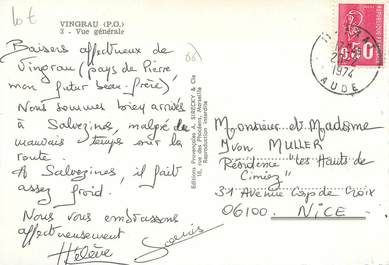 lot
VINGRAU (P.O.)
2 - Vue générale
Baisers affectueux de
Vingrau (pays de Pierre,
mon futur beau-frère)
Nous sommes bien arrivés
à Salvezines, malgré de
mauvais temps sur la
route.
A Salvezines, il fait
assez froid.
Nous vous embrassons
affectueusement
Hélène Louis
Editions Provençales A. SIRECKY & Cie
18, rue des Phocéens, Marseille
Reproduction interdite
11
1974
AUDE
0,50
Monsieur et Madame
Yvon MULLER
Résidence "les Hauts de
Cimiez"
31 Avenue Cap de Croix
06100. NICE